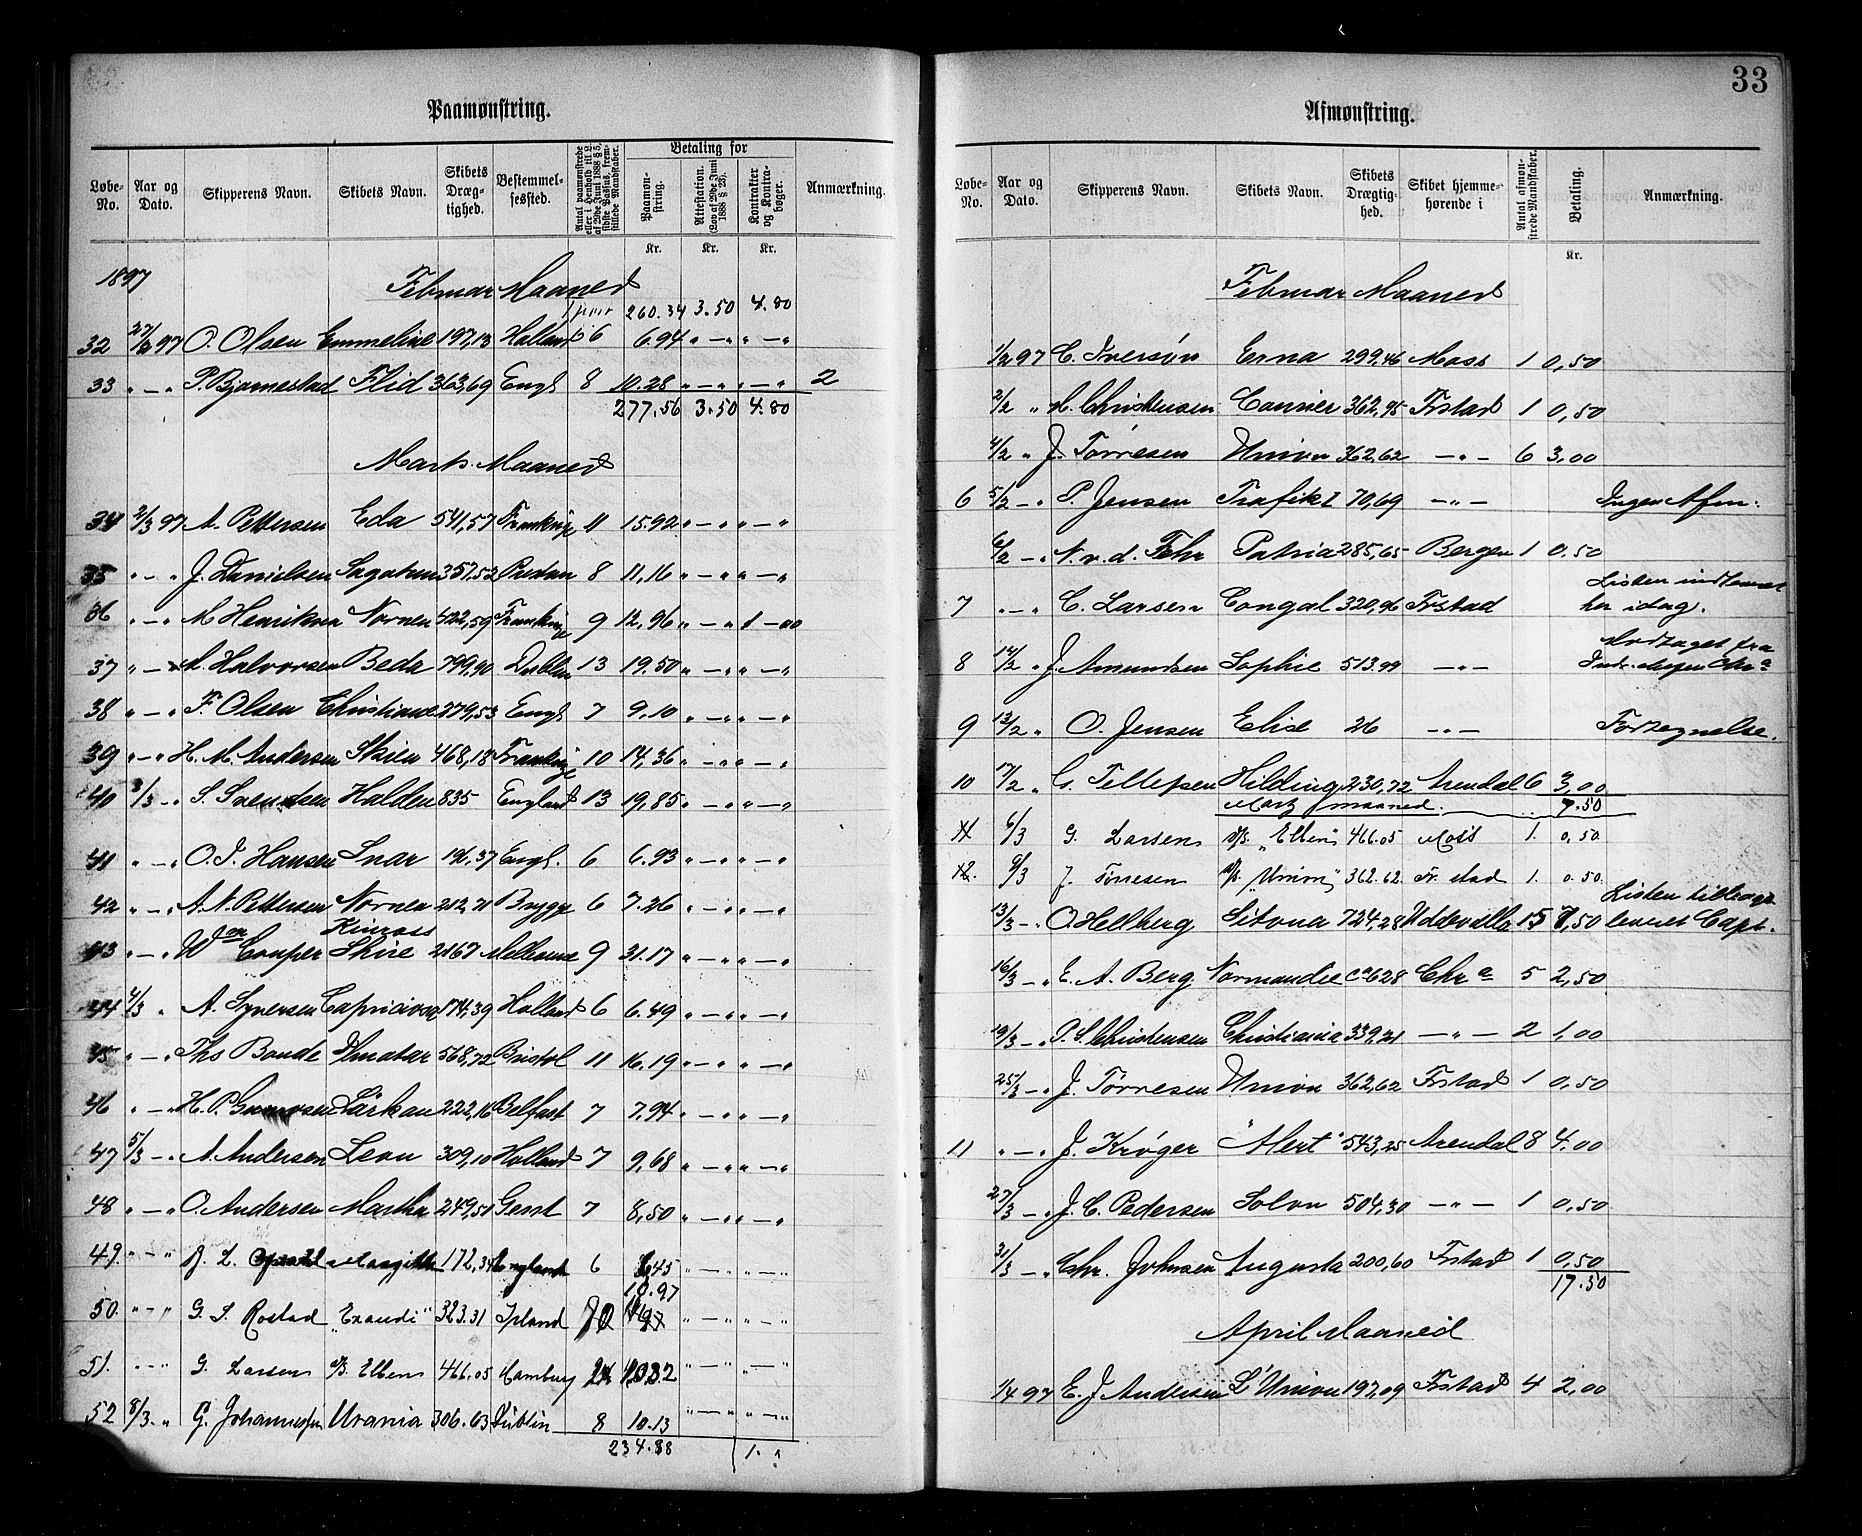 Paamønstring.
Løbe-No. Aar og Dato. Skipperens Navn. Skibets Navn. Skibets Dræg-tighed. Bestemmel-sessted. Antal paamønstrede eller i Henhold til L. af 29de Juni 1888 § 5, sidste Passus, frem-stillede Mandskaber. Betaling for Paamøn-string. Attestation. (Lov af 29de Juni 1888 § 23). Kontrakter og Kontra-bøger. Anmærkning.
Kr. Kr. Kr.
1897 Februar Maaned
260.34 3.50 4.80
32 27/2 97 O. Olsen Emmeline 197,13 Holland 6 6.94 " — " " — "
33 " — " P. Bjørnestad Flid 363,69 Engl 8 10.28 " — " " — " 2
277.56 3.50 4.80
Marts Maaned
34 2/3 97 A. Pettersen Eda 541,57 Frankrige 11 15.92 " — " " — "
35 " — " J. Danielsen Sagatun 357,52 Preston 8 11,16 " — " " — "
36 " — " M Henriksen Nornen 422,59 Frankrige 9 12,96 " — " 1 — 00
37 " — " A. Halvorsen Beda 799,90 Dublin 13 19.50 " — " " — "
38 " — " F. Olsen Christiane 279,53 Engl 7 9.10 " — " " — "
39 " — " H. M. Andersen Skien 468,18 Frankrige 10 14,36 " — " " — "
40 3/3 — " S. Svendsen Halden 835 England 13 19,85 " — " " — "
41 " — " O. J. Hansen Snar 196,37 Engl. 6 6.93 " — " " — "
42 " — " A. N. Pettersen Nornen 212,71 Brygge 6 7.26 " — " " — "
43 " — " Wm Couper Kinross Shire 2167 Melbourne 9 31.17 " — " " — "
44 4/3 " A. Syversen Capricioso 174,39 Holland 6 6.49 " — " " — "
45 " — " Ths Bonde Ilmatar 568,72 Bristol 11 16.19 " — " " — "
46 " — " H. P. Lärkan 222,16 Belfast 7 7.94 " — " " — "
47 5/3 — " A. Andersen Leon 309,10 Holland 7 9,68 " — " " — "
48 " — " O. Andersen Martha 249,51 Gent 7 8,50 " — " " — "
49. " — " Margitha 172,34 England 6 45 " — " " — "
10.97
50. " — " G. S. Rostad "Exaudi" 323.31 Irland 10 " — " " — "
51. " — " G. Larsen d/s. Ellen 466.05 Hamburg " — " " — "
52 8/3. " G. Johannesen Urania 306.63 Dublin 8 10.13 " — " " — "
234.88 1. "
33
Afmønstring.
Løbe-No. Aar og Dato. Skipperens Navn. Skibets Navn. Skibets Drægtig-hed. Skibet hjemme-hørende i Antal afmøn-strede Mandskaber. Betaling. Anmærkning.
Kr.
Februar Maaned
1/2 97 C. Iversøn Erna 299,46 Moss 1 0,50
2/2 " M. Christensen Courier 362,95 Frstad 1 0,50
4/2 " J. Tørresen Union 362,62 — " — 6 3,00
6 5/2 — " P. Jensen Trafik I 70,69 — " — Ingen Afm:
6/2 — " N. v. d. Fehr Patria 285,65 Bergen 1 0.50
7 " — " C. Larsen Congal 320,96 Frstad Listen indleveret her idag.
8 12/2 " J. Amundsen Sophie 513.99 — " — Modtaget fra
9 13/2 " O. Jensen Elise 26 — " — Fortegnelse.
10 17/2 " G. Tellefsen Hilding 230,72 Arendal 6 3,00
Marts maaned. 7.50
11 6/3 G. Larsen d/s. "Ellen" 466.05 Moss 1. 0,50
12. 9/3 J. Tørresen d/s. "Union" 362.62. Fr.stad 1. 0.50.
13/3 — " O Hellberg Sitona 724,28 Uddevalla 15 7,50 Listen tilbage leveret Capt.
16/3 — " E. A. Berg Normandie ca 628 Chra 5 2,50
19/3 — " P. S. Christensen Christiania 339,21 — " — 2 1,00
25/3 — " J. Tørresen Union 362,62 Frstad 1 0.50
11 " — " J. Krøger "Alert" 543,25 Arendal 8 4.00
27/3 — " J. C. Pedersen Solon 504,30 — " — 1 0.50
31/3 — " Chr. Johnsen Augusta 200,60 Frstad 1 0,50
17.50
April Maaned
1/4 97 E. J. Andersen L'Union 197,09 Frstad 4 2,00